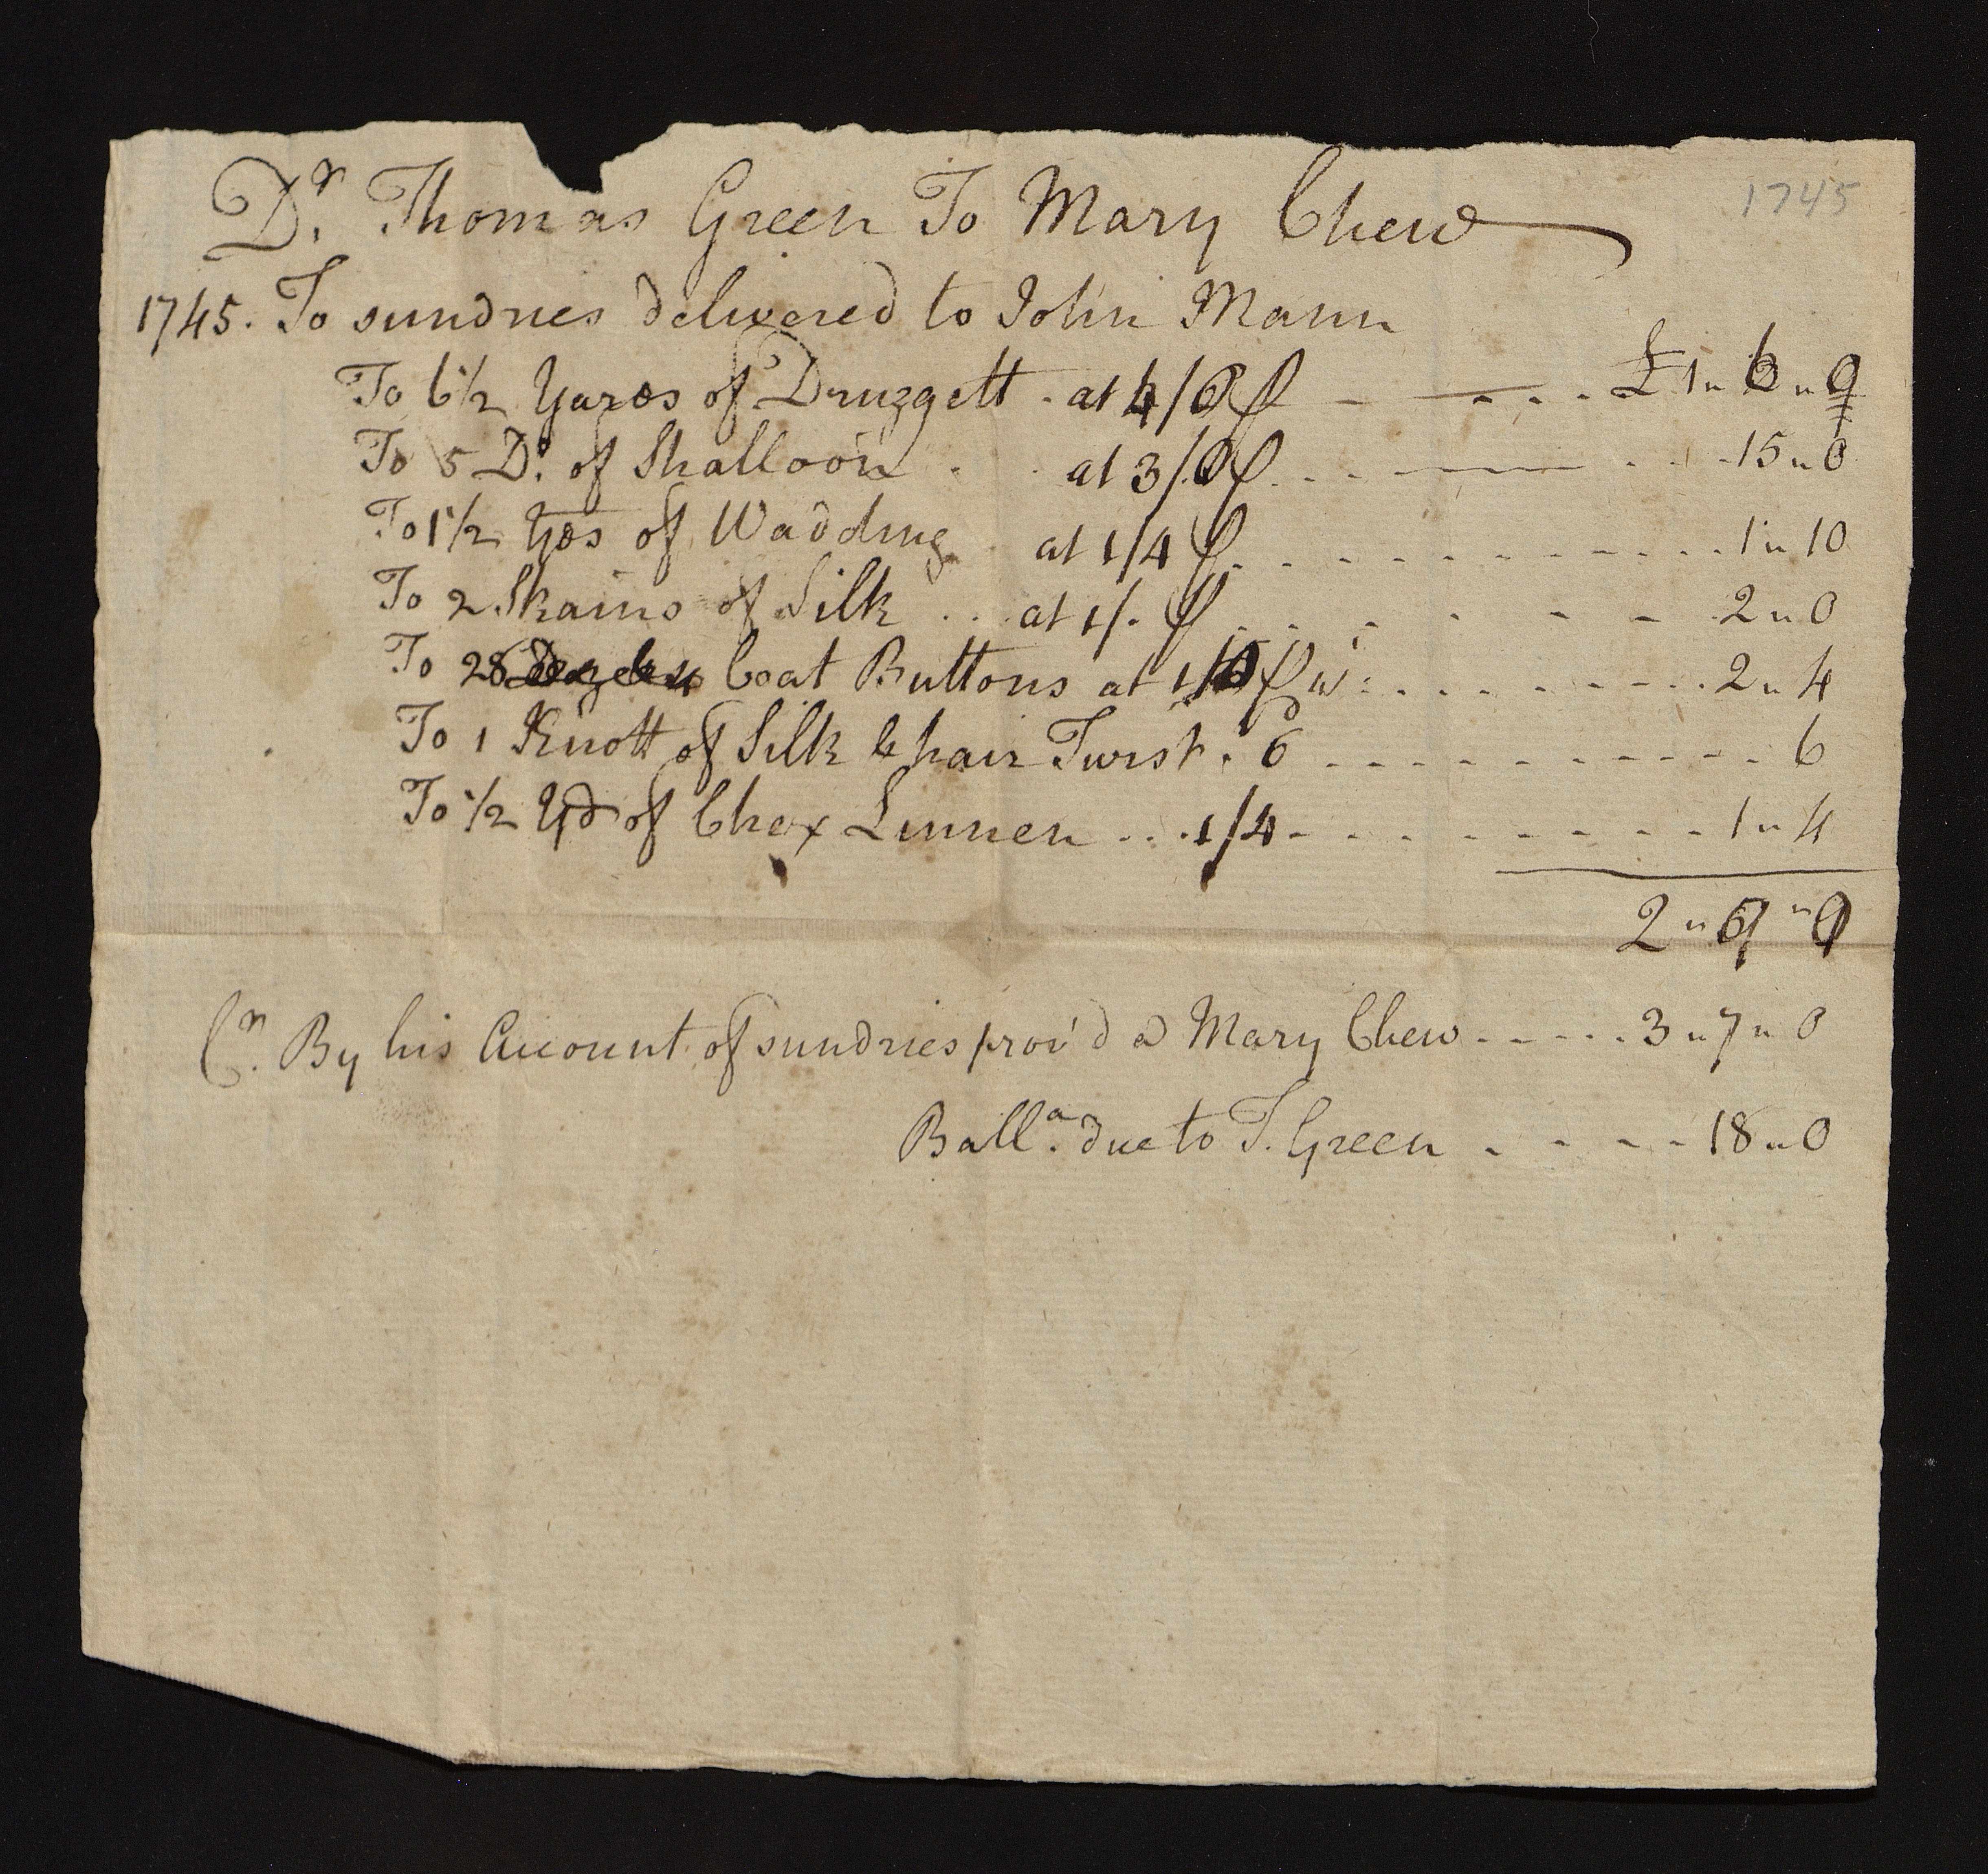 Dr. Thomas Green To Mary Chew
1745
1745. To sundries delivered to John Mann
To 6 1/2 Yards of Druggett . at 4/ ℔ - - - - £ 1 " 6 " 0
To 5 Do. of Shalloon . . at 3/0 ℔ - - - - 15 " 0
To 1 1/2 Yds of Wadding . at 1/4 ℔ - - - - 1 " 10
To 2 Skains of Silk . . . at 1/. ℔ - - - - 2 " 0
To 28 Coat Buttons at 1/ ℔ - - - - 2 " 4
To 1 Knott of Silk & hair Twist . 6 - - - - 6
To 1/2 Yd of Chex Linnen . . . 1/4 - - - - 1 " 4
2 " 9 " 0
Cr. By his Account of sundries prov'd a Mary Chew - - - - 3 " 7 " 0
Balla. due to T. Green - - - - 18 " 0